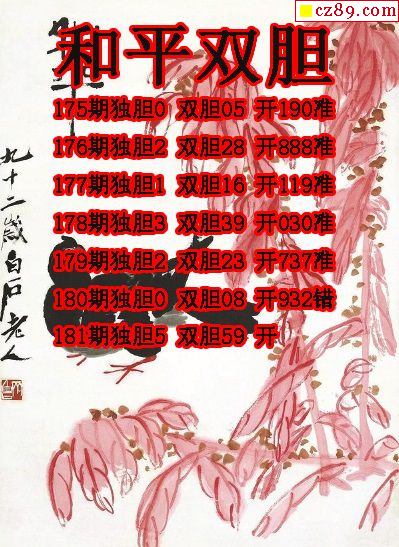 cz89.com
和平双胆
175期独胆0 双胆05 开190准
176期独胆2 双胆28 开888准
177期独胆1 双胆16 开119准
178期独胆3 双胆39 开030准
179期独胆2 双胆23 开737准
180期独胆0 双胆08 开932错
181期独胆5 双胆59 开
九十二岁白石老人